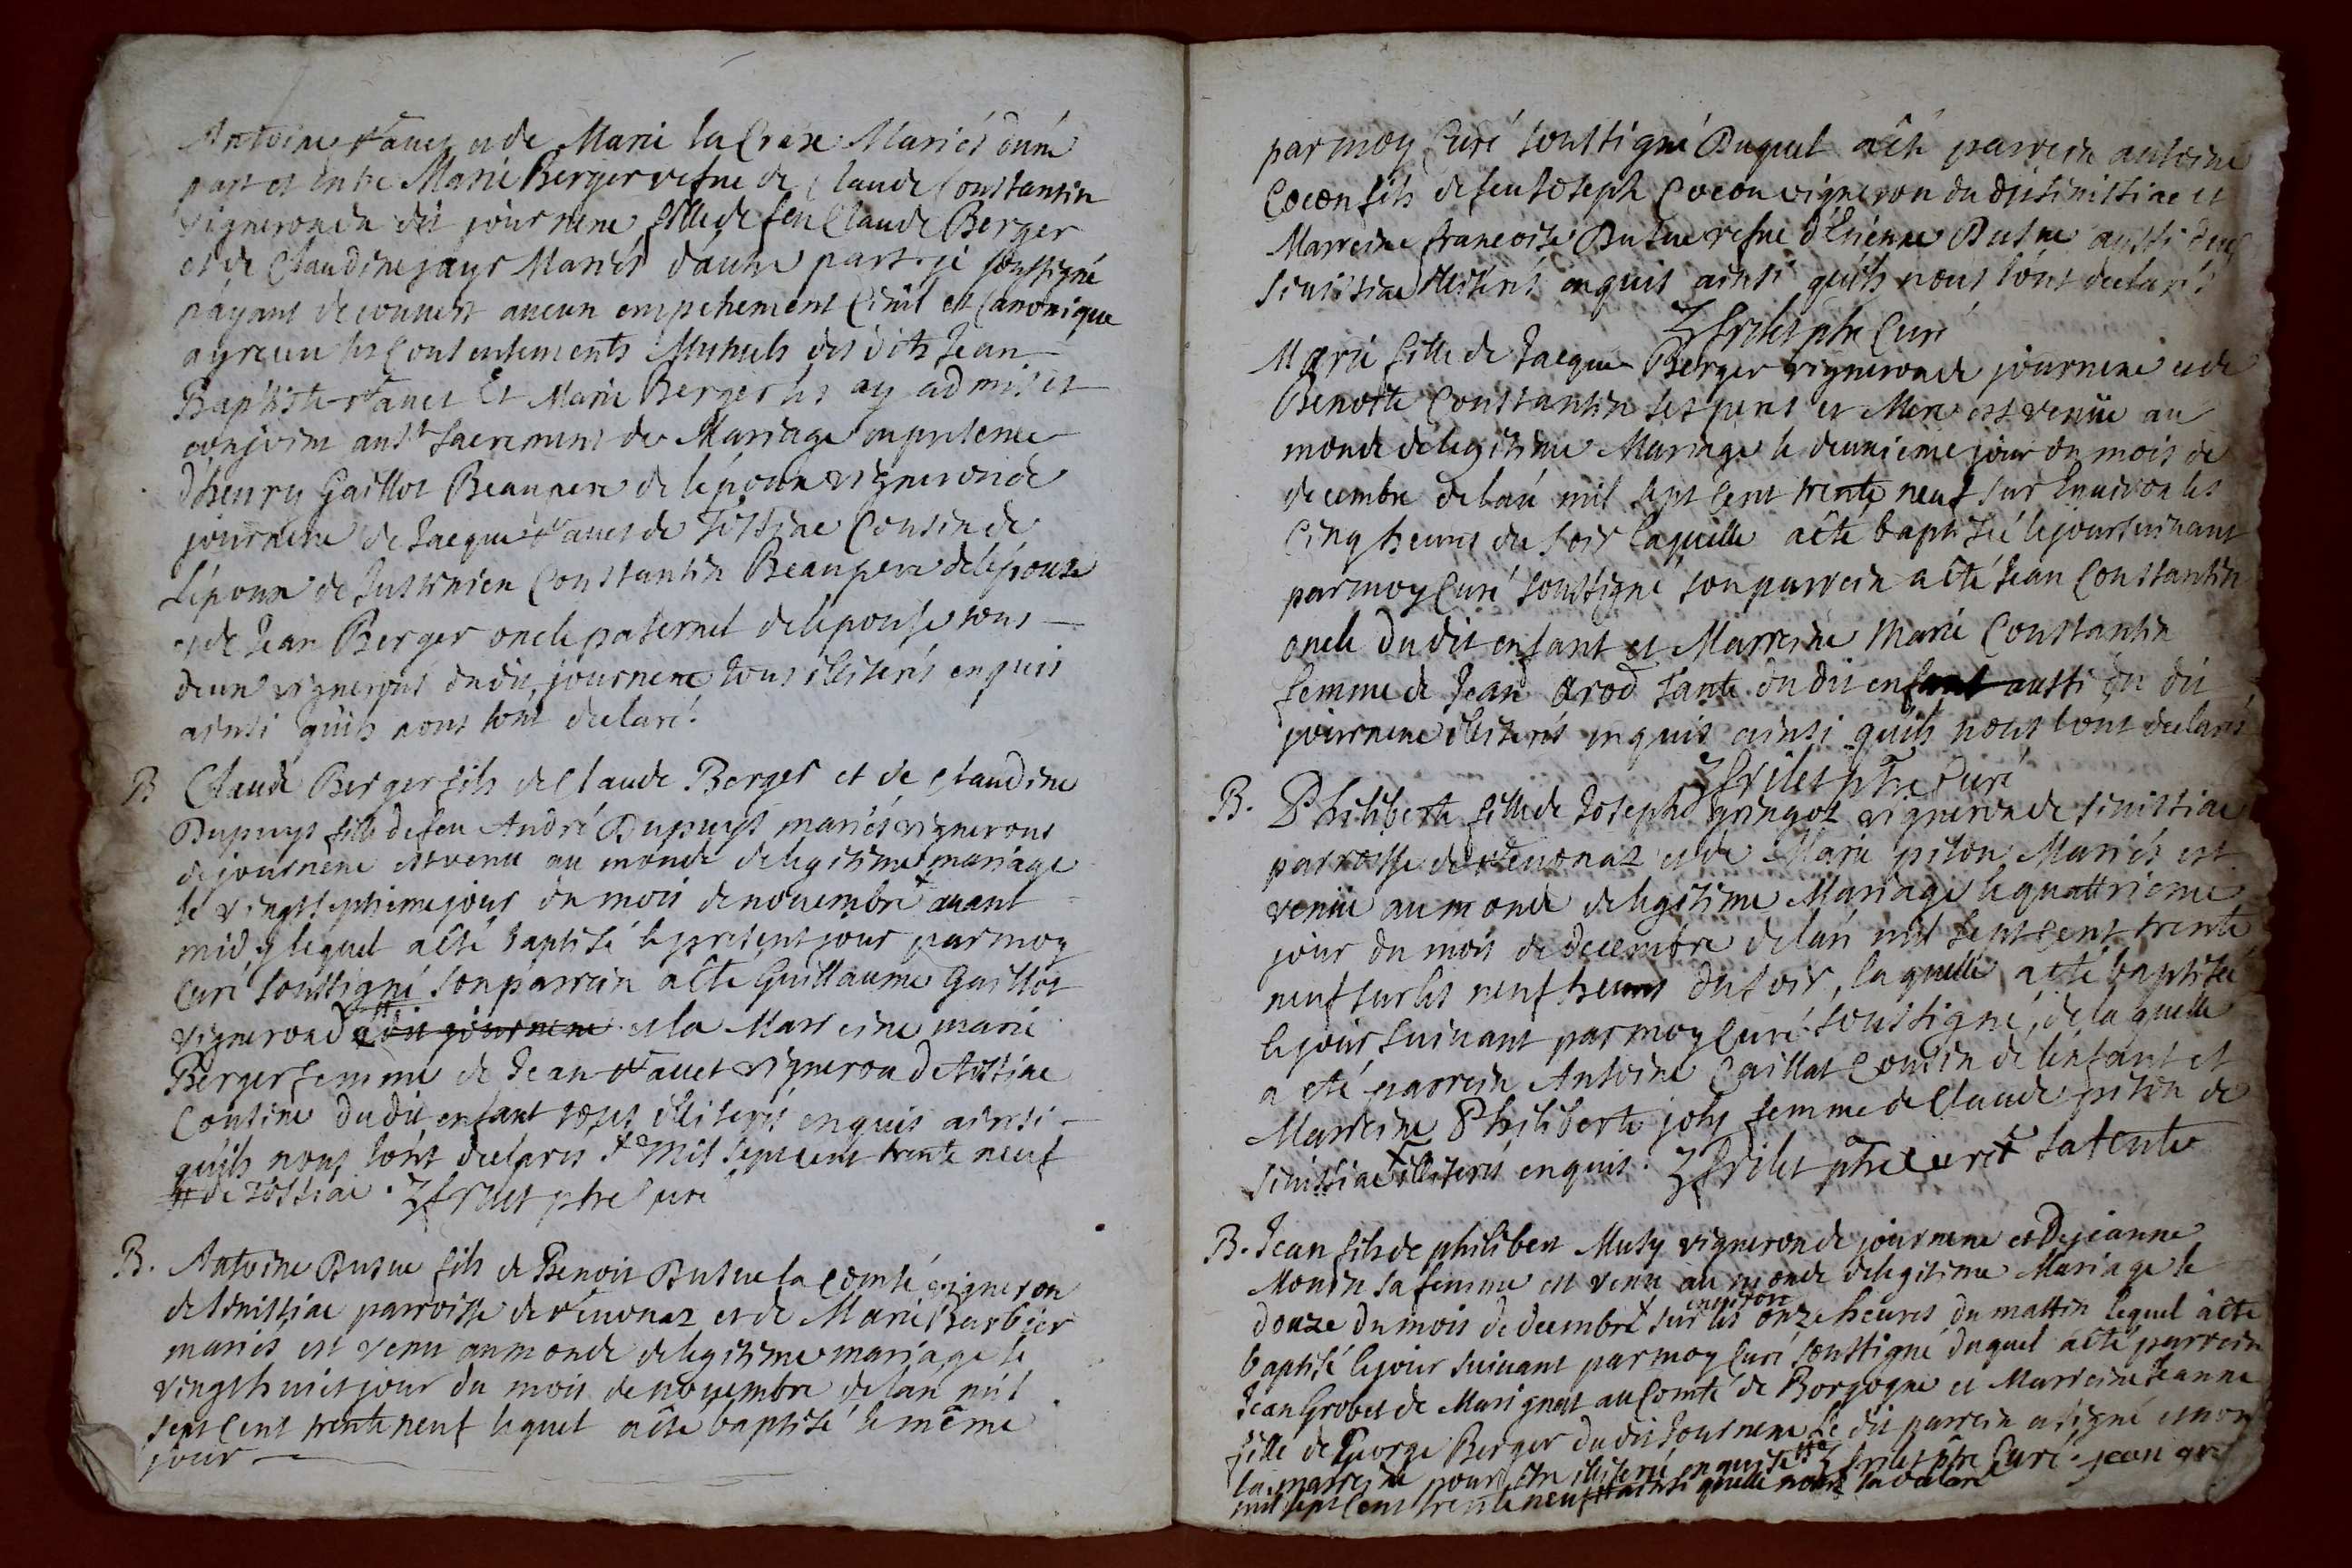 Antoine et de Marie la Croix Mariés d'une
part et entre Marie Berger vefue de Claude Constantin
vigneron du dit journene fille de feu Claude Berger
et de Claudine jays Mariés d'autre part je soussigné
n'ayant decouuert aucun empechement Ciuil et Canonique
ay receu les Consentements Mutuels des dits Jean
Baptiste et Marie Berger les ay admis et
conjoint au st sacrement de Mariage en presence
d'henry Gaillot Beaupere de l'époux vigneron de
journene de Jacque de Tossiac Cousin de
l'époux de Justinien Constantin Beaupere de l'épouse
et de Jean Berger oncle paternel de l'épouse tous
deux vignerons du dit journene tous illiterés enquis
ainsi qu'ils nous l'ont declaré.
B Claude Berger fils de Claude Berger et de Claudine
Dupuys fille de feu André Dupuys mariés vignerons
de journene est venu au monde de legitime mariage
le vingtseptieme jour du mois de nouembre + auant
midy lequel a êté baptisé le present jour par moy
Curé soussigné son parrain a êté Guillaume Gaillot
vigneron du dit journene # et la Marreine marie
Berger femme de Jean vigneron de tossiac
Cousine du dit enfant tous illiterés enquis ainsi
qu'ils nous l'ont declarés + mil sept cent trente neuf
# de tossiac. frilet ptre Curé
B. Antoine Butue fils de Benoit Butue la comté vigneron
de senissiac parroisse de et de Marie Barbier
mariés est venu au monde de legitime mariage le
vingthuict jour du mois de nouembre de l'an mil
sept cent trente neuf lequel a êté baptisé le même
jour
par moy Curé soussigné Duquel a êté parrein antoine
Cocon fils de feu Joseph Cocon vigneron du dit senissiac et
Marreine francoise Butue vefue d'Etiénne Butue aussi de
senissiac illiterés enquis ainsi qu'ils nous l'ont declarés
frilet ptre Curé
Marie fille de Jacque Berger vigneron de journene et de
Benoite Constantin ses peres et Mere est venüe au
monde de legitime Mariage le deuxieme jour du mois de
decembre de l'an mil sept cent trente neuf sur enuiron les
Cinq heures du soir laquelle a êté baptisée le jour suiuant
par moy Curé soussigné son parrein a êté Jean Constantin
oncle du dit enfant et Marreine Marie Constantin
femme de Jean arod tante du dit enfant aussi du dit
journene illiterés enquis ainsi qu'ils nous l'ont declarés
frilet ptre Curé
B. Philiberte fille de Joseph gringoz vigneron de senissiac
parroisse de et de Marie piton Mariés est
venüe au monde de legitime Mariage le quattrieme
jour du mois de decembre de l'an mil sept cent trente
neuf sur les neuf heures du soir, laquelle a êté baptisée
le jour suiuant par moy Curé soussigné, de laquelle
a êté parrein Antoine Caillat Cousin de l'enfant et
Marreine Philiberte joly femme de Claude piton de
senissiac + illiterés enquis. frilet ptre curé + sa tente
B. Jean fils de philibert Musy vigneron de journene et De jeanne
Monin sa femme est venu au monde de legitime Mariage le
douze du mois de decembre + sur les enuiron onze heures du mattin lequel a êté
baptisé le jour suiuant par moy Curé soussigné duquel a êté parrein
Jean Grobet de Marignat au Comté de Borgogne et Marreine Jeanne
fille de George Berger du dit Journene le dit parrein a signé et non
la marreine pour être illiterée enquise # frilet ptre Curé. jean gro
mil sept cent trente neuf # ainsi quelle nous la declaré